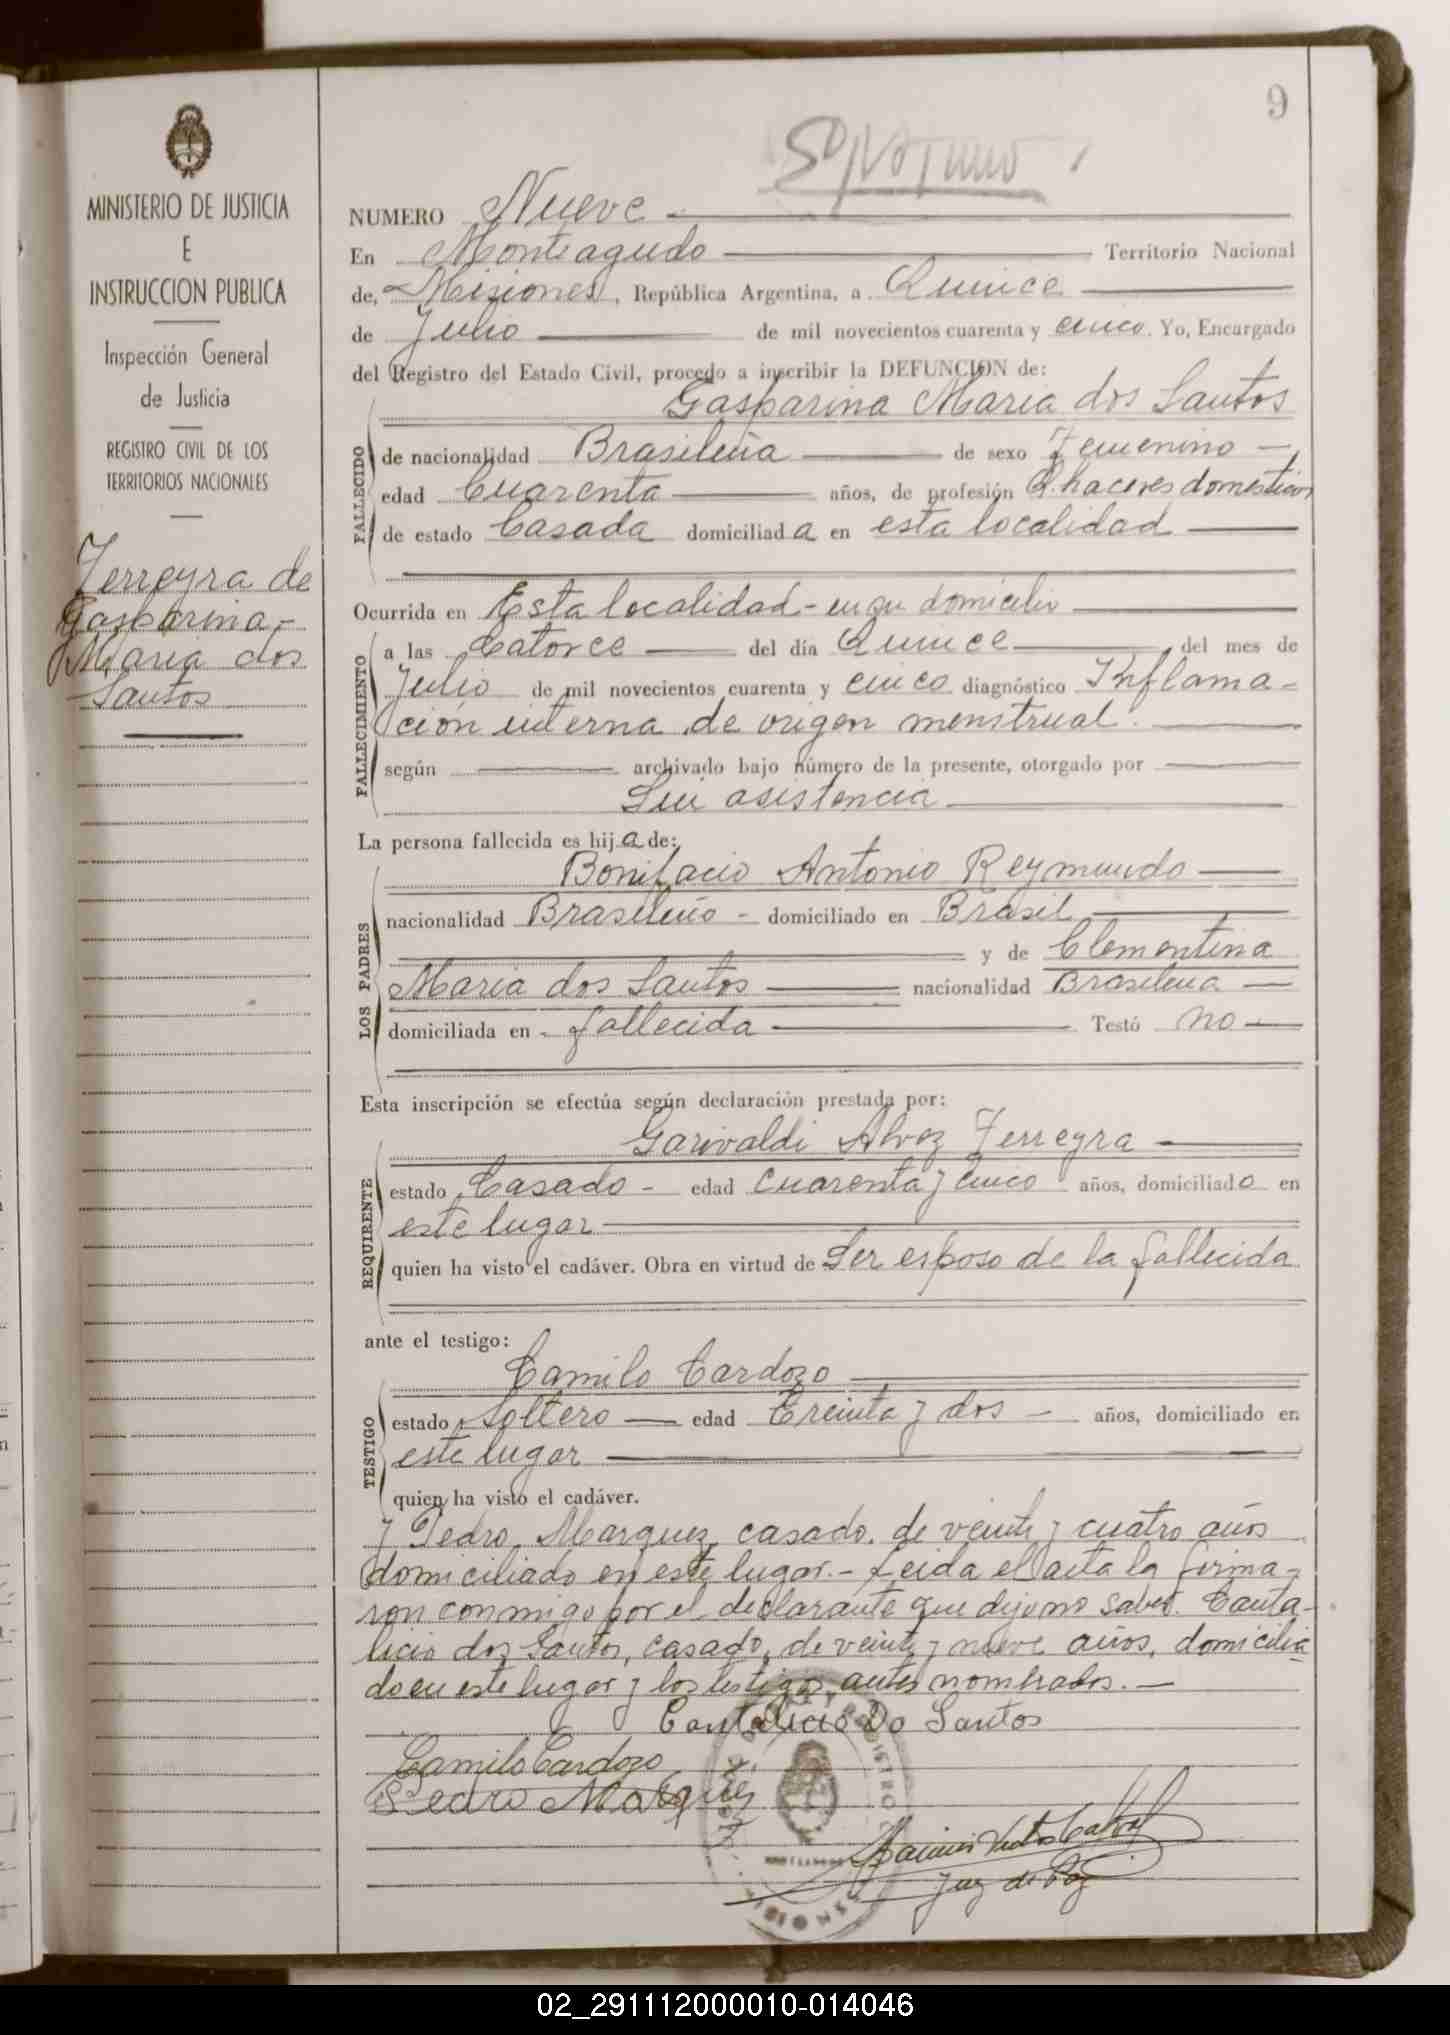 9
MINISTERIO DE JUSTICIA
E
INSTRUCCION PUBLICA
Inspección General
de Justicia
REGISTRO CIVIL DE LOS
TERRITORIOS NACIONALES
Ferreyra de
Gasparina-
Maria dos
Santos
NUMERO Nueve
En Monteagudo Territorio Nacional
de, Misiones, República Argentina, a Quince
de Julio de mil novecientos cuarenta y cinco. Yo, Encargado
del Registro del Estado Civil, procedo a inscribir la DEFUNCION de:
Gasparina Maria dos Santos
FALLECIDO
de nacionalidad Brasileña de sexo Femenino -
edad Cuarenta años, de profesión Q. haceres domesticos
de estado Casada domiciliada en esta localidad
Ocurrida en Esta localidad - en su domicilio
FALLECIMIENTO
a las Catorce del día Quince del mes de
Julio de mil novecientos cuarenta y cinco diagnóstico Inflama-
ción interna de origen menstrual.
según archivado bajo número de la presente, otorgado por
Sin asistencia
La persona fallecida es hija de:
LOS PADRES
Bonifacio Antonio Reymundo
nacionalidad Brasileño - domiciliado en Brasil
y de Clementina
Maria dos Santos nacionalidad Brasileña
domiciliada en fallecida Testó no
Esta inscripción se efectúa según declaración prestada por:
REQUIRENTE
Garivaldi Alvez Ferreyra
estado Casado - edad cuarenta y cinco años, domiciliado en
este lugar
quien ha visto el cadáver. Obra en virtud de Ser esposo de la fallecida
ante el testigo:
TESTIGO
Camilo Cardozo
estado Soltero edad Treinta y dos - años, domiciliado en
este lugar
quien ha visto el cadáver.
y Pedro Marquez, casado, de veinte y cuatro años
domiciliado en este lugar.- Leida el acta la firma-
ron conmigo por el declarante que dijo no saber. Canta-
licio dos Santos, casado, de veinte y nueve años, domicilia
do en este lugar y los testigos antes nombrados.-
Cantalicio Do Santos
Camilo Cardozo
Pedro Marquez
Juez de Paz
02_291112000010-014046